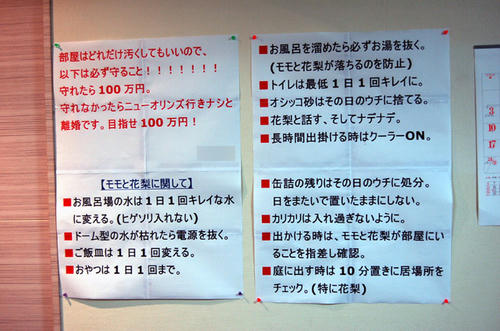 部屋はどれだけ汚くしてもいいので、
以下は必ず守ること！！！！！！！
守れたら 100 万円。
守れなかったらニューオリンズ行きナシと
離婚です。目指せ 100 万円！
【モモと花梨に関して】
■お風呂場の水は 1 日 1 回キレイな水
に変える。(ヒゲソリ入れない)
■ドーム型の水が枯れたら電源を抜く。
■ご飯皿は 1 日 1 回変える。
■おやつは 1 日 1 回まで。
■お風呂を溜めたら必ずお湯を抜く。
(モモと花梨が落ちるのを防止)
■トイレは最低 1 日 1 回キレイに。
■オシッコ砂はその日のウチに捨てる。
■花梨と話す、そしてナデナデ。
■長時間出掛ける時はクーラーON。
■缶詰の残りはその日のウチに処分。
日をまたいで置いたままにしない。
■カリカリは入れ過ぎないように。
■出かける時は、モモと花梨が部屋にい
ることを指差し確認。
■庭に出す時は 10 分置きに居場所を
チェック。(特に花梨)
3
10
17